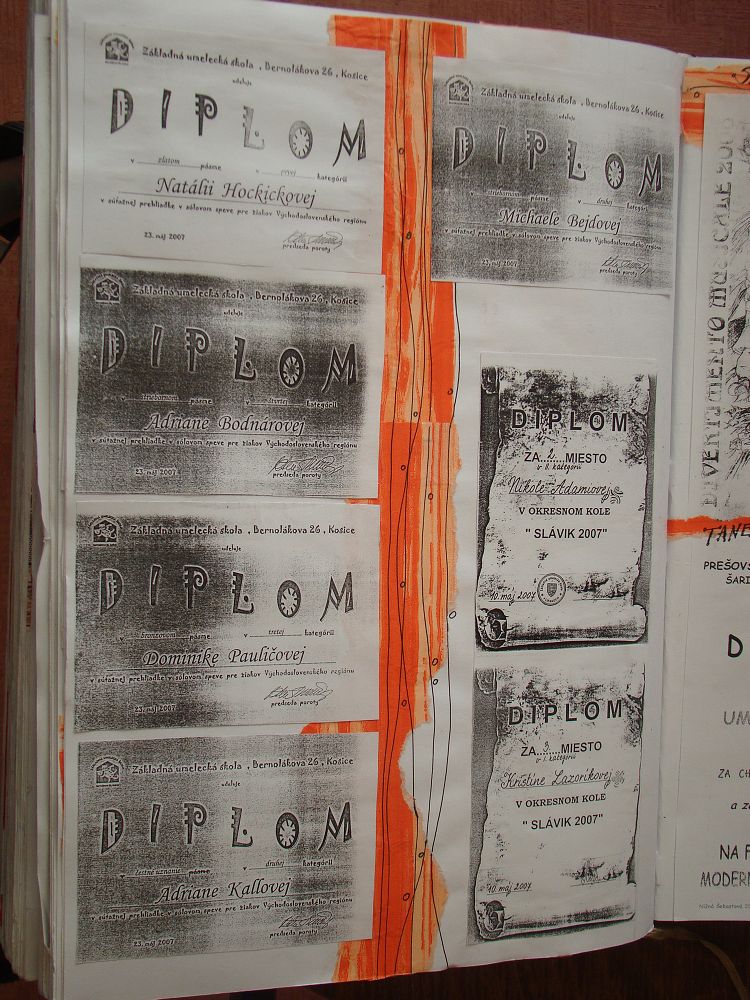 Základná umelecká škola , Bernolákova 26 , Košice
udeľuje
DIPLOM
v zlatom pásme v prvej kategórii
Natálii Hockickovej
v súťažnej prehliadke v sólovom speve pre žiakov Východoslovenského regiónu
23. máj 2007
predseda poroty
Základná umelecká škola , Bernolákova 26 , Košice
udeľuje
DIPLOM
v striebornom pásme v štvrtej kategórii
Adriane Bodnárovej
v súťažnej prehliadke v sólovom speve pre žiakov Východoslovenského regiónu
23. máj 2007
predseda poroty
Základná umelecká škola , Bernolákova 26 , Košice
udeľuje
DIPLOM
v bronzovom pásme v tretej kategórii
Dominike Pauličovej
v súťažnej prehliadke v sólovom speve pre žiakov Východoslovenského regiónu
23. máj 2007
predseda poroty
Základná umelecká škola , Bernolákova 26 , Košice
udeľuje
DIPLOM
v čestné uznanie pásme v druhej kategórii
Adriane Kallovej
v súťažnej prehliadke v sólovom speve pre žiakov Východoslovenského regiónu
23. máj 2007
predseda poroty
Základná umelecká škola , Bernolákova 26 , Košice
udeľuje
DIPLOM
v striebornom pásme v druhej kategórii
Michaele Bejdovej
v súťažnej prehliadke v sólovom speve pre žiakov Východoslovenského regiónu
23. máj 2007
predseda poroty
DIPLOM
ZA...2....MIESTO
v II. kategórii
Nikole Adamiovej
V OKRESNOM KOLE
" SLÁVIK 2007"
10. máj 2007
DIPLOM
ZA...3....MIESTO
v I. kategórii
Kristíne Lazoríkovej
V OKRESNOM KOLE
" SLÁVIK 2007"
10. máj 2007
DIVERTIMENTO MUSICALE
TANE
PREŠOVS
ŠARI
D
UM
ZA CH
a za
NA F
MODERN
Nižná Šebastová 20